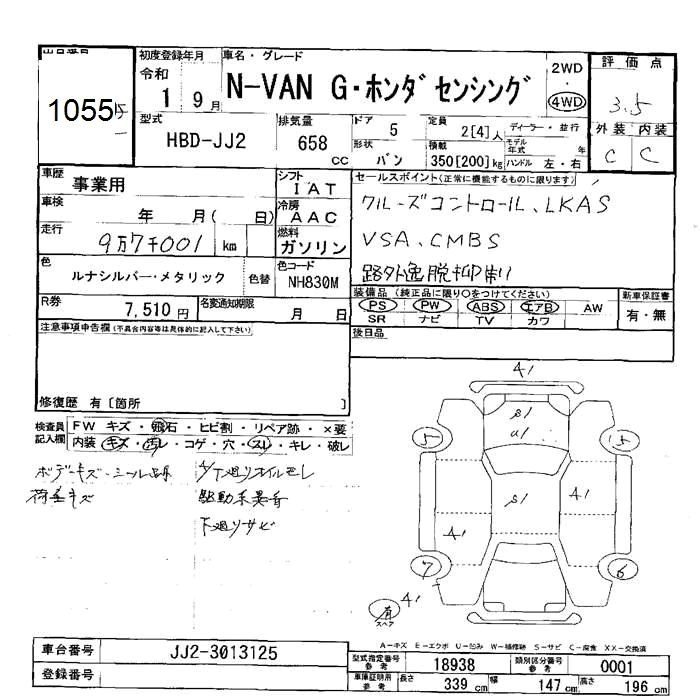 初度登録年月 車名・グレード 評価点
令和 1 9月 N-VAN G・ホンダセンシング 2WD ・ 4WD 3.5
1055
型式 HBD-JJ2 排気量 658 cc ドア 5 形状 バン 定員 2[4]人 積載 350[200]kg ディーラー・並行 モデル年式 年 ハンドル 左・右 外装 内装 C C
車歴 事業用 シフト IAT セールスポイント(正常に機能するものに限ります)
車検 年 月( 日) 冷房 AAC クルーズコントロール、LKAS
走行 9万7千001 km 燃料 ガソリン VSA、CMBS
色 ルナシルバー・メタリック 色替 色コード NH830M 路外逸脱抑制
R券 7,510円 名変通知期限 月 日 装備品(純正品に限り○をつけてください) 新車保証書
PS PW ABS エアB AW 有・無
SR ナビ TV カワ
注意事項申告欄(不具合内容等は具体的に記入して下さい) 後日品
修復歴 有〔箇所 〕
検査員記入欄 FW キズ・飛石・ヒビ割・リペア跡・×要
内装 キズ・汚れ・コゲ・穴・スレ・キレ・破レ
ボデーキズ・シール跡 下廻りオイルモレ
荷室キズ 駆動系異音
下廻りサビ
A1
S1
U1
5 5
S1 A1
A1
7 6
有 スペア A1
A-キズ E-エクボ U-凹み W-補修跡 S-サビ C-腐食 XX-交換済
車台番号 JJ2-3013125 型式指定番号 参考 18938 類別区分番号 参考 0001
登録番号 車庫証明用 参考 長さ 339cm 幅 147cm 高さ 196cm